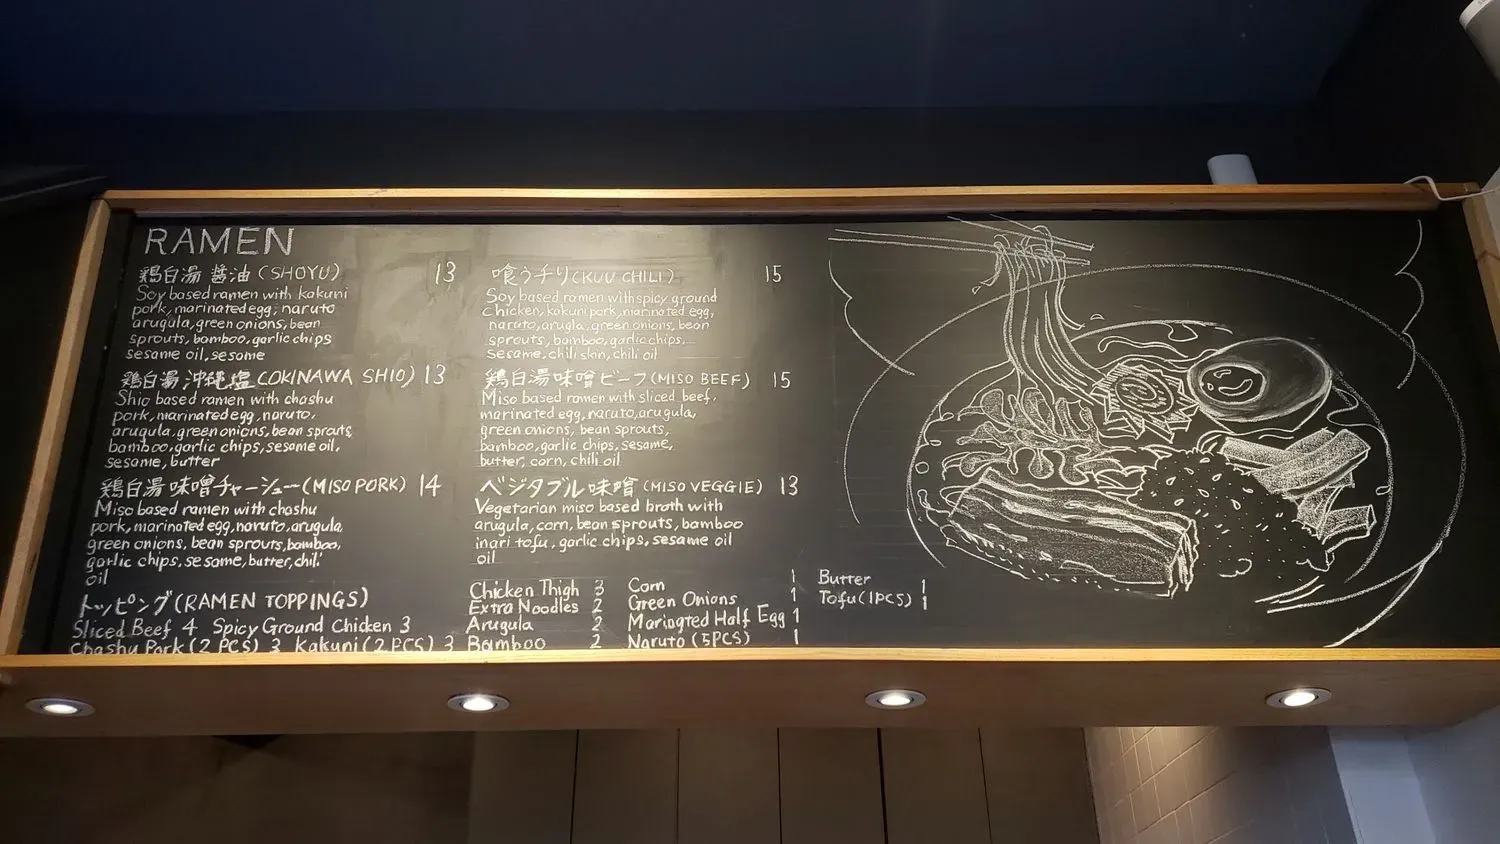 RAMEN
鶏白湯 醤油 (SHOYU) 13
Soy based ramen with kakuni
pork, marinated egg, naruto
arugula, green onions, bean
sprouts, bamboo, garlic chips
sesame oil, sesame
鶏白湯 沖縄塩 (OKINAWA SHIO) 13
Shio based ramen with chashu
pork, marinated egg, naruto,
arugula, green onions, bean sprouts,
bamboo, garlic chips, sesame oil,
sesame, butter
鶏白湯 味噌チャーシュー (MISO PORK) 14
Miso based ramen with chashu
pork, marinated egg, naruto, arugula,
green onions, bean sprouts, bamboo,
garlic chips, sesame, butter, chili
oil
喰うチリ (KUU CHILI) 15
Soy based ramen with spicy ground
Chicken, kakuni pork, marinated egg,
naruto, arugla, green onions, bean
sprouts, bamboo, garlic chips,
Sesame, chili skin, chili oil
鶏白湯味噌ビーフ (MISO BEEF) 15
Miso based ramen with sliced beef,
marinated egg, naruto, arugula,
green onions, bean sprouts,
bamboo, garlic chips, sesame,
butter, corn, chili oil
ベジタブル味噌 (MISO VEGGIE) 13
Vegetarian miso based broth with
arugula, corn, bean sprouts, bamboo
inari tofu, garlic chips, sesame oil
oil
トッピング (RAMEN TOPPINGS)
Sliced Beef 4 Spicy Ground Chicken 3
Chashu Pork (2 PCS) 3 Kakuni (2 PCS) 3
Chicken Thigh 3
Extra Noodles 2
Arugula 2
Bamboo 2
Corn 1
Green Onions 1
Maringted Half Egg 1
Naruto (5PCS) 1
Butter 1
Tofu (1PCS) 1